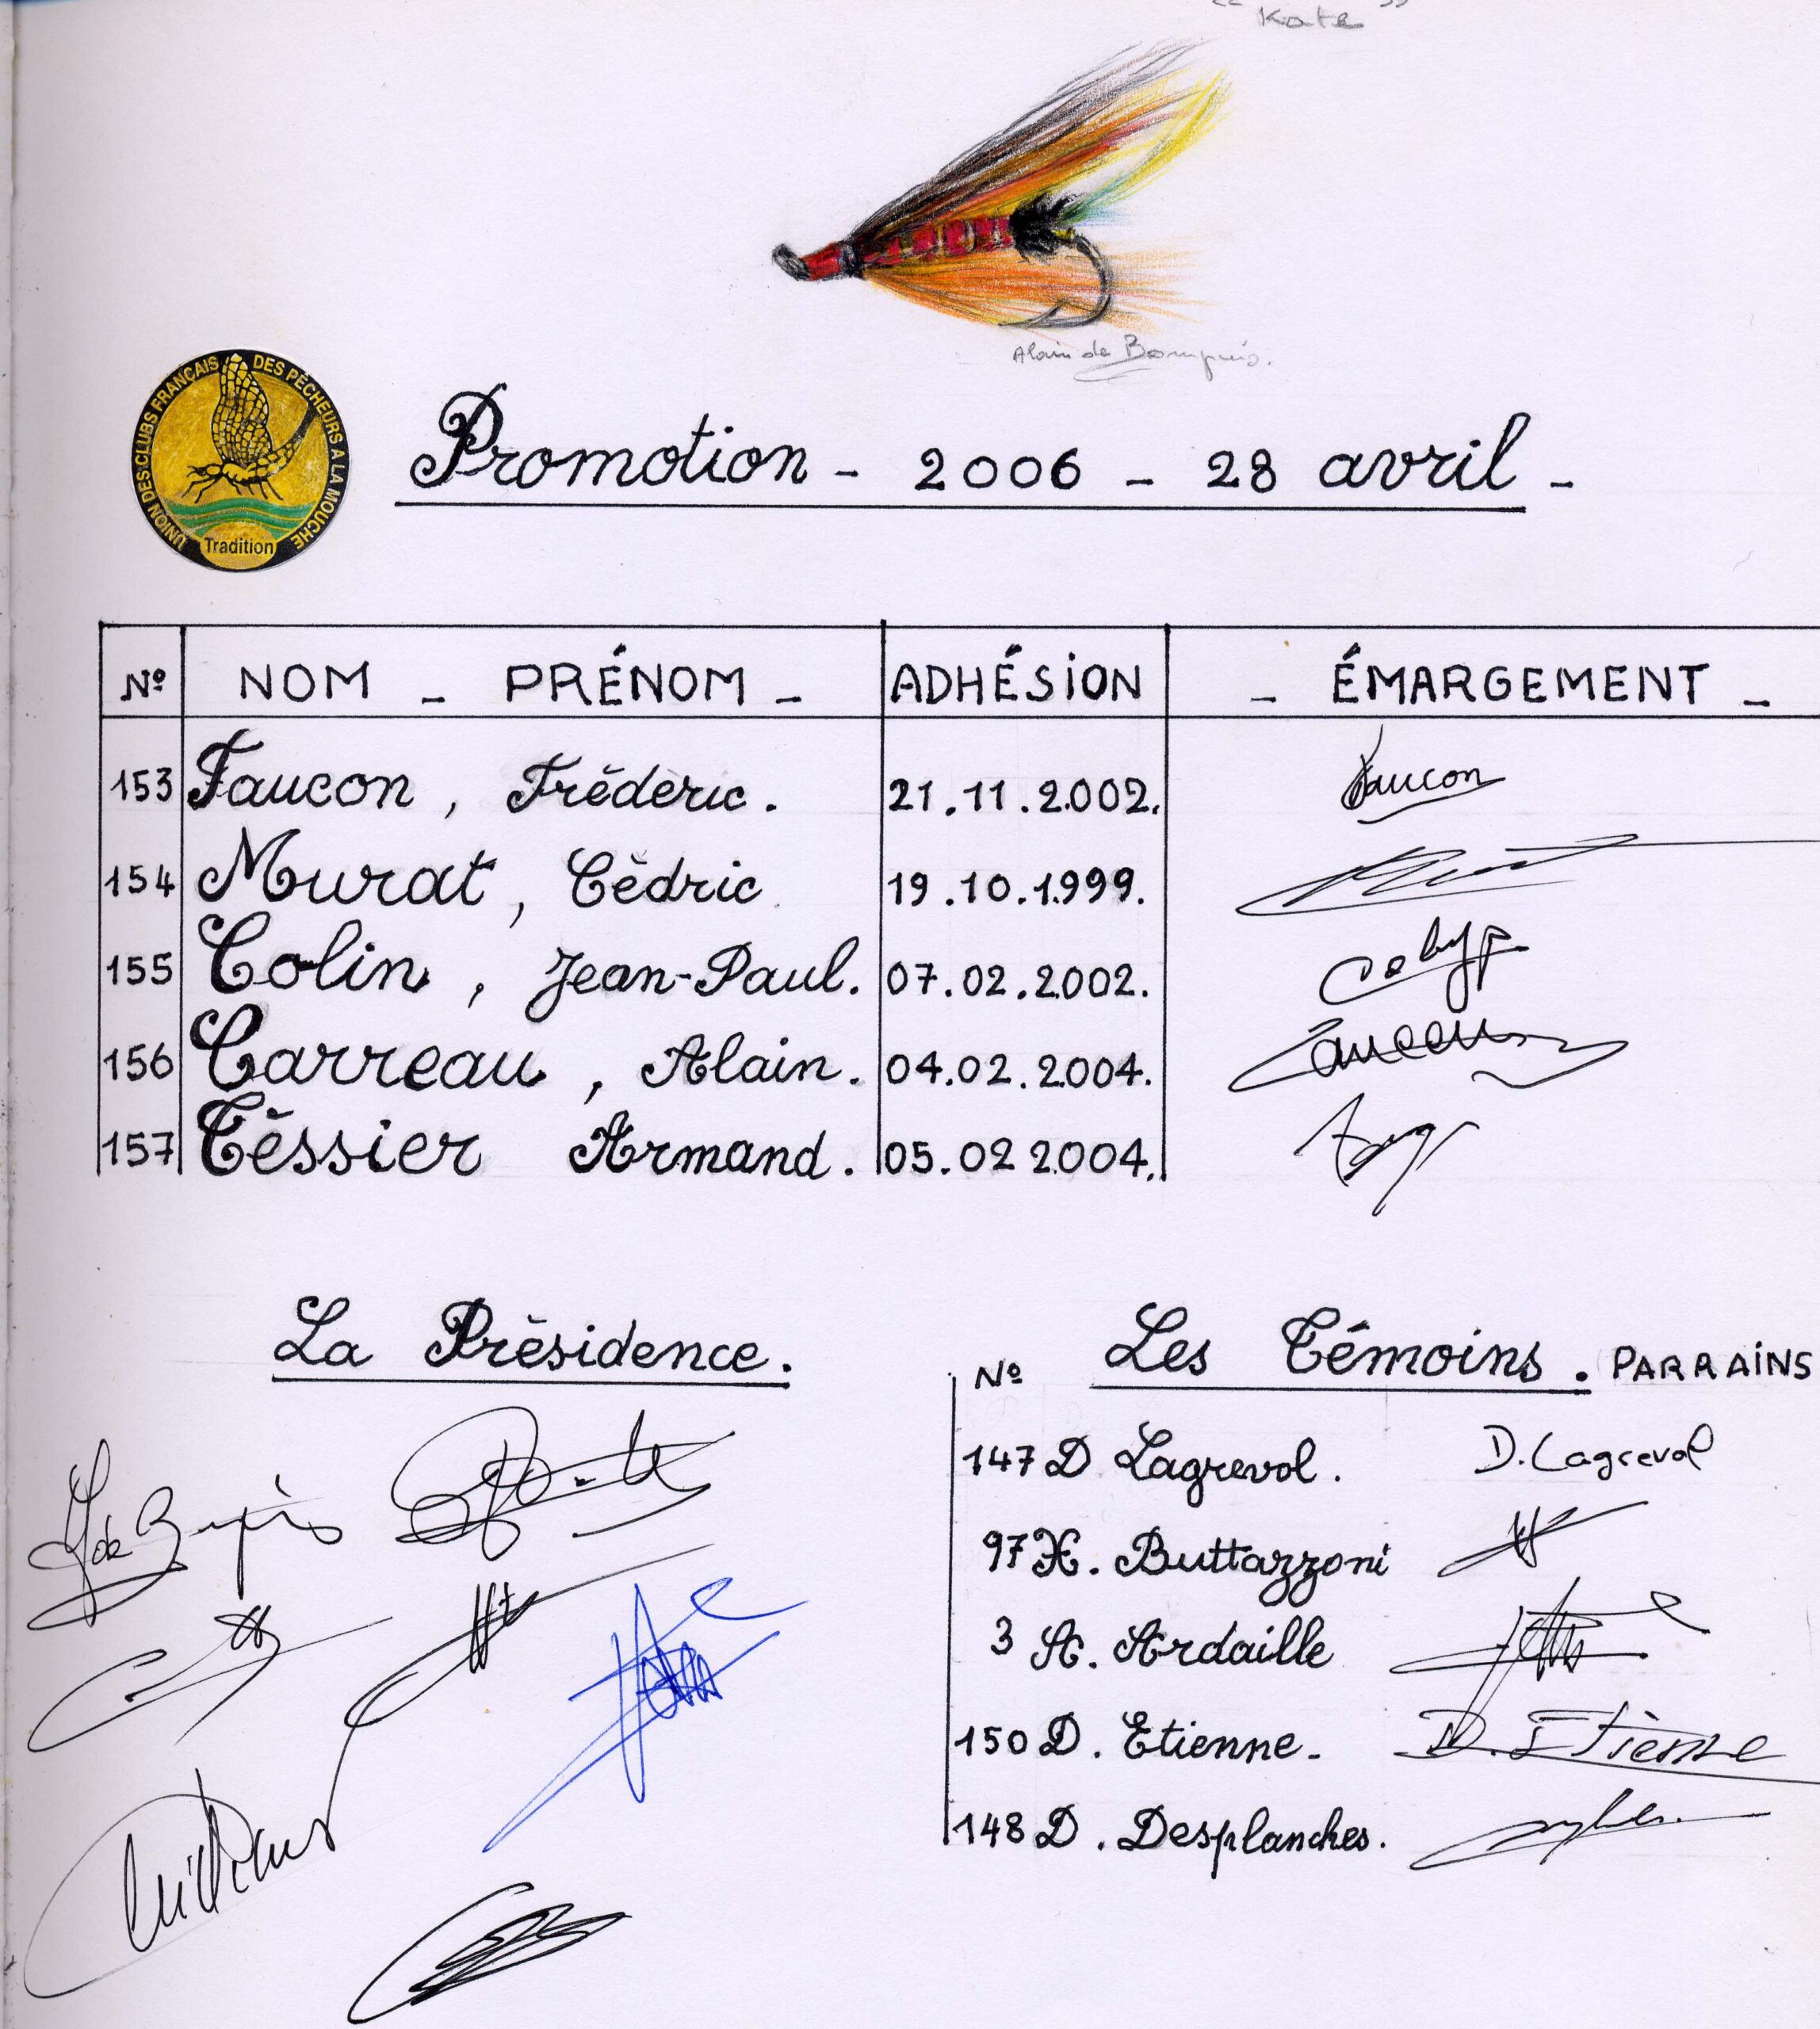 "Kate"
Alain de Bompuis.
UNION DES CLUBS FRANÇAIS DES PÊCHEURS A LA MOUCHE
Tradition
Promotion - 2006 - 28 avril -
Nº NOM - PRÉNOM - ADHÉSION - ÉMARGEMENT -
153 Faucon, Fréderic. 21.11.2002. Faucon
154 Murat, Cédric 19.10.1999.
155 Colin, Jean-Paul. 07.02.2002.
156 Carreau, Alain. 04.02.2004.
157 Téssier Armand. 05.02 2004.
La Présidence.
Nº Les Témoins. PARRAINS
147 D Lagrevol. D. Lagrevol
97 H. Buttazzoni
3 A. Ardaille
150 D. Etienne- D. Etienne
148 D. Desplanches.